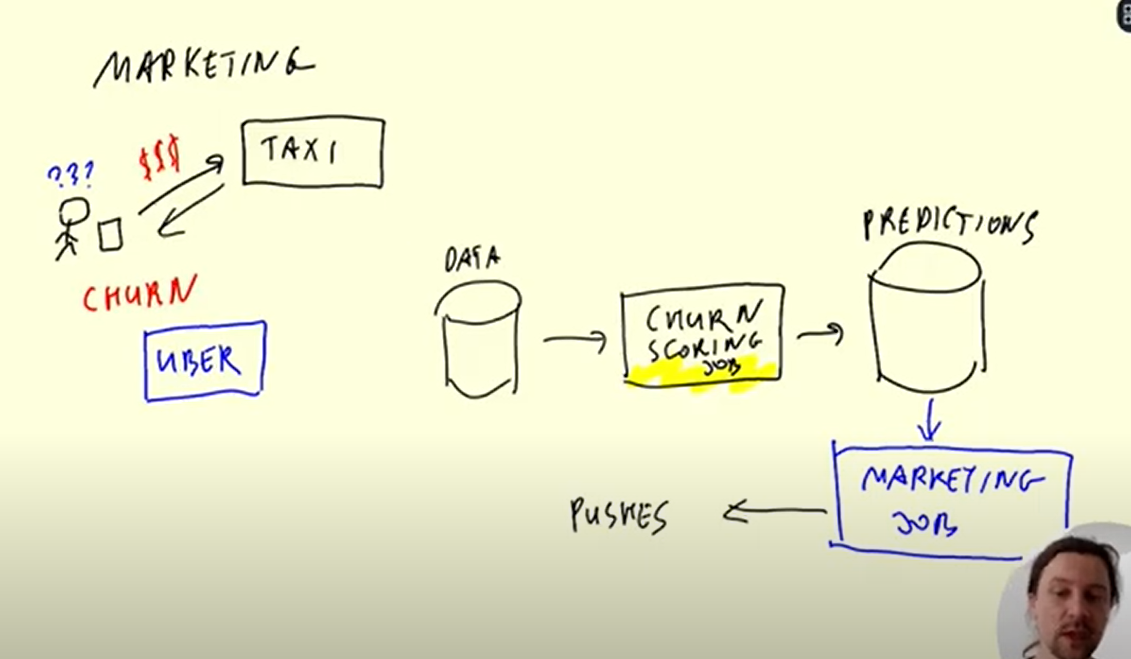 MARKETING
???
$$$
TAXI
CHURN
UBER
DATA
CHURN
SCORING
JOB
PREDICTIONS
MARKETING
JOB
PUSHES